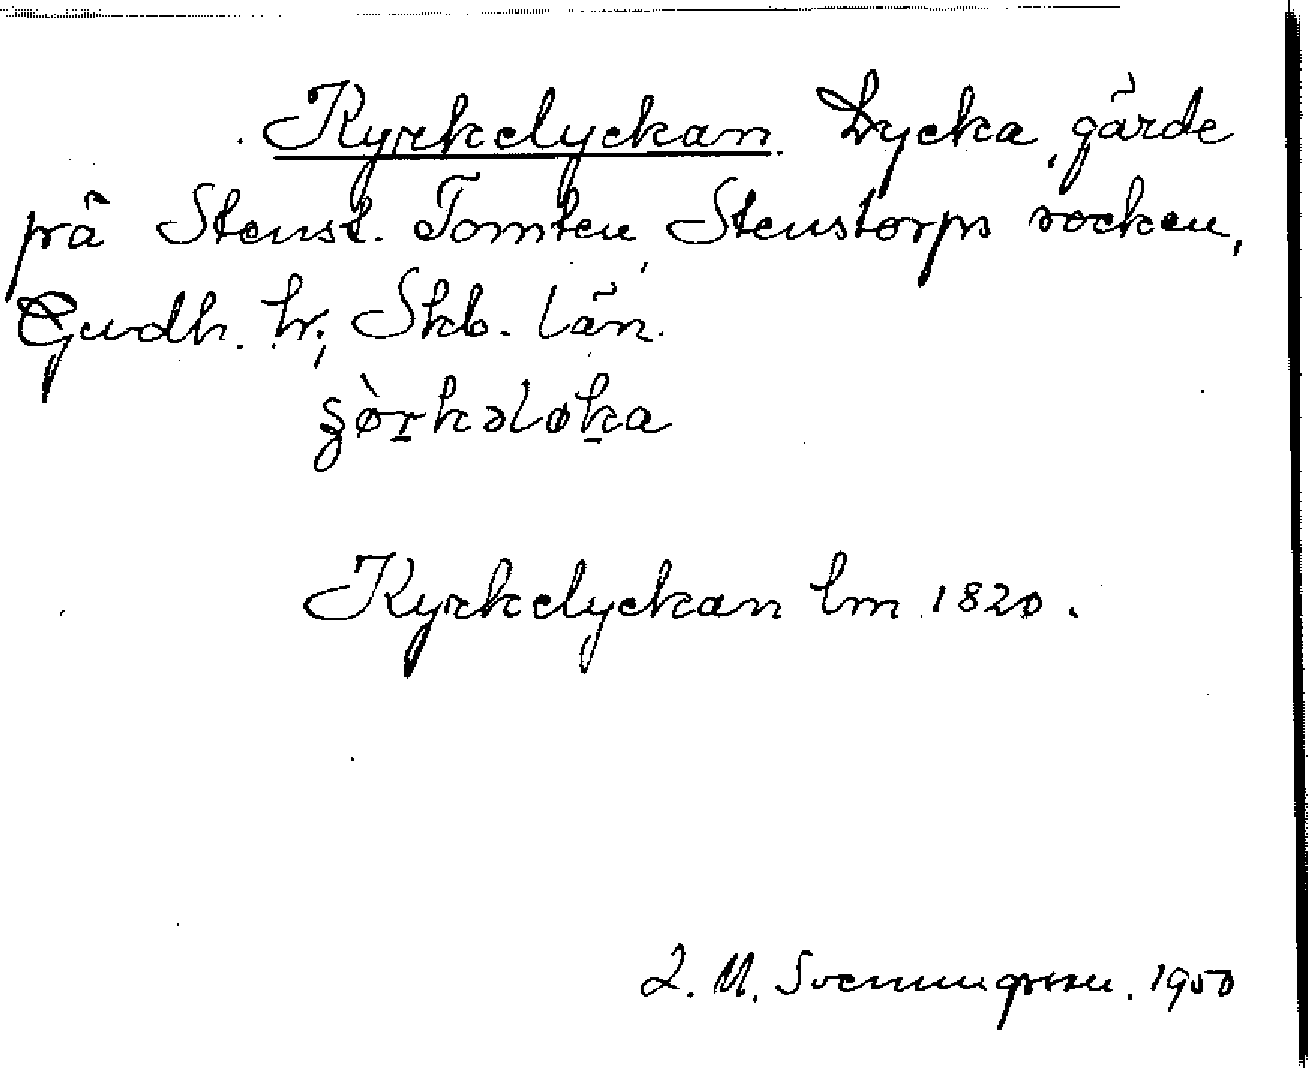 Kyrkelyckan. Lycka, gärde
på Stenst. Tomten, Stenstorps socken,
Gudh. hr, Skb. län.
Kyrkelyckan lm 1820.
Svenningsson. 1950